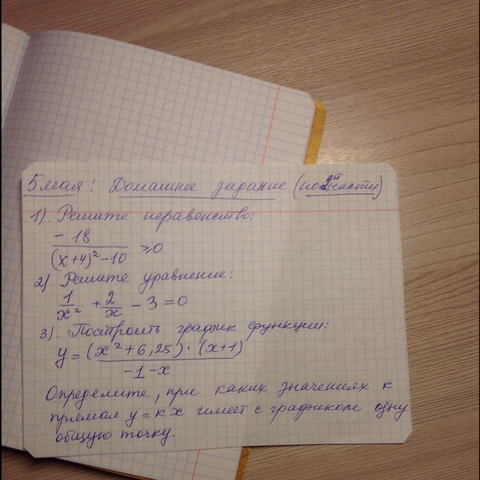 5 мая: Домашнее задание (по 2й части)
1). Решите неравенство:
-18
(x+4)²-10 ≥0
2). Решите уравнение:
1/x² + 2/x - 3 = 0
3). Построить график функции:
y = (x²+6,25)·(x+1)
-1-x
Определите, при каких значениях к
прямая y = кx имеет с графиком одну
общую точку.